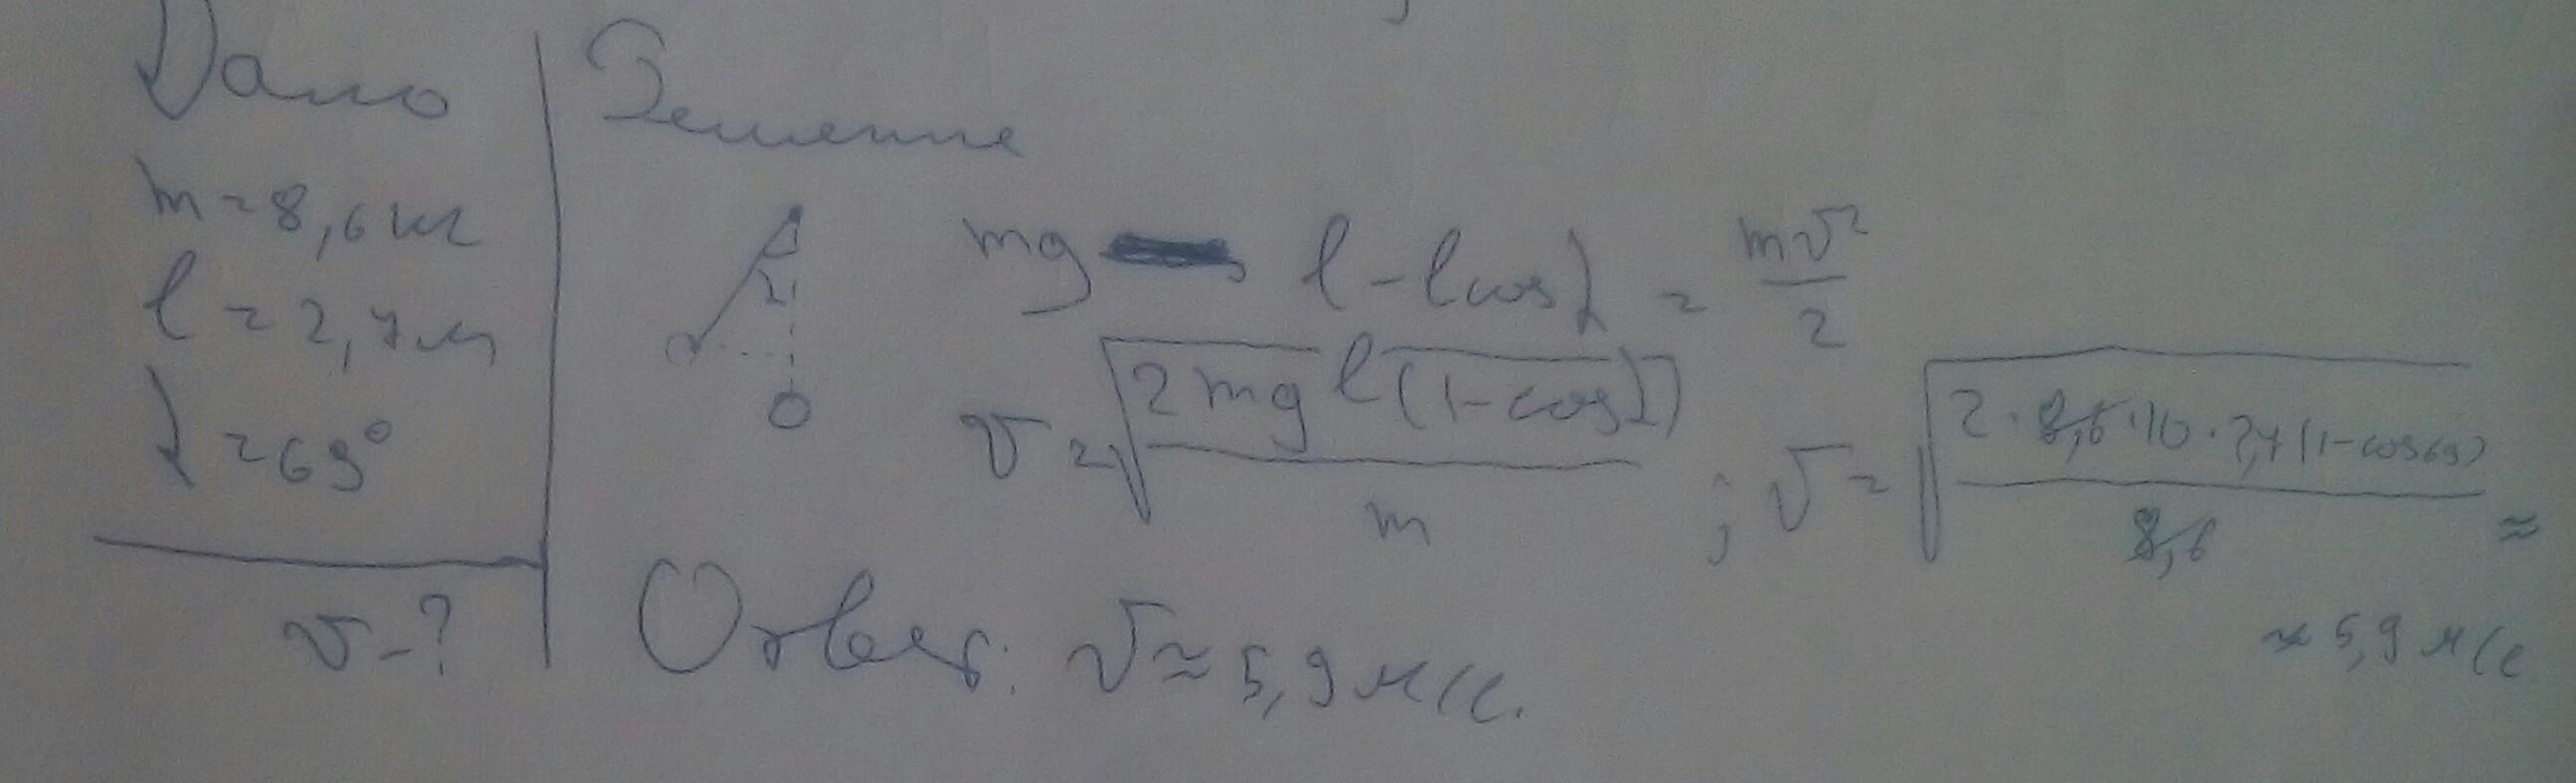 Дано
m = 8,6 кг
l = 2,7 м
α = 69°
v - ?
Решение
α
mg l - l cos α = mv²/2
v = √(2mgl(1-cos α)/m) ; v = √(2·8,6·10·2,7(1-cos69)/8,6) ≈
≈ 5,9 м/с
Ответ: v ≈ 5,9 м/с.